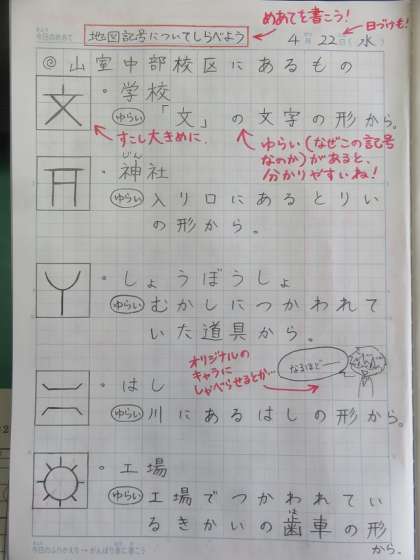 めあてを書こう!
日づけも!
今日のめあて
地図記号についてしらべよう
4月22日(水)
◎山室中部校区にあるもの
文
・学校
ゆらい「文」の文字の形から。
すこし大きめに.
ゆらい(なぜこの記号
なのか)があると、
分かりやすいね!
じん
・神社
ゆらい入り口にあるとりい
の形から。
・しょうぼうしょ
ゆらいむかしにつかわれて
いた道具から。
オリジナルの
キャラに
しゃべらせるとか…
なるほどー
・はし
ゆらい川にあるはしの形から。
・工場
ゆらい工場でつかわれてい
は
るきかいの歯車の形
から。
今日のふりかえり→がんばり表に書こう